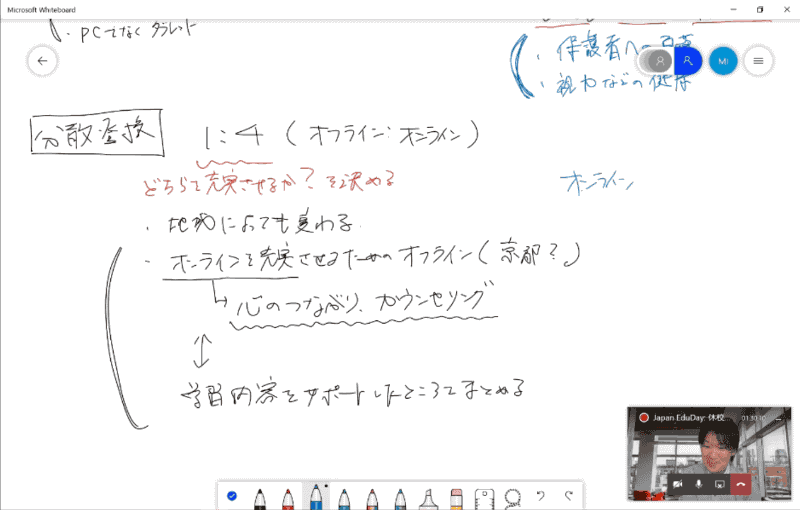 Microsoft Whiteboard
・PCでなく タブレット
・保護者への
・視力などの健康
MI
分散登校 1:4 (オフライン:オンライン)
どちらで充実させるか?を決める
オンライン
・地域によっても変わる
・オンラインを充実させるためのオフライン(京都?)
心のつながり、カウンセリング
学習内容をサポートしたところでまとめる
Japan EduDay: 休校